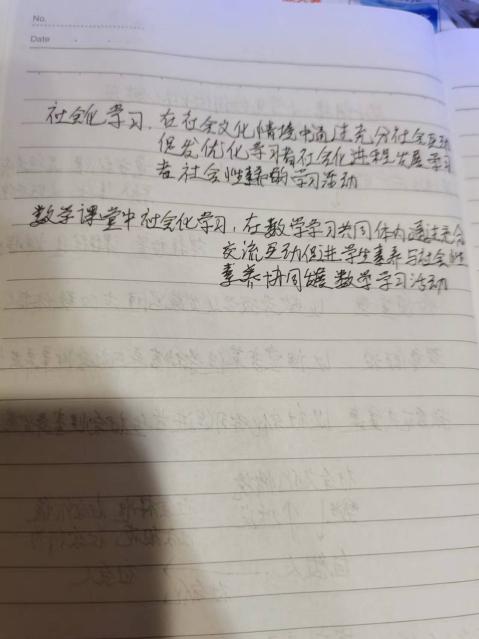 No.
Date
社会化学习，在社会文化情境中通过充分社会互动
促发优化学习者社会化进程发展学习
者社会性素养的学习活动
数学课堂中社会化学习，在数学学习共同体内通过充分
交流互动促进学生素养与社会性
素养协同发展数学学习活动